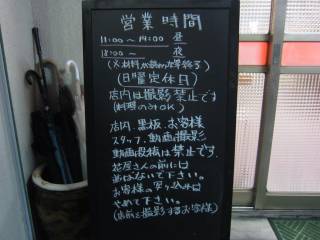 営業時間
11:00~14:00 昼
18:00~ 夜
(※材料が終わり次第終了)
(日曜定休日)
店内は撮影禁止です
(料理のみOK)
店内、黒板、お客様
スタッフ、動画撮影
動画投稿は禁止です。
花屋さんの前に
並ばないで下さい。
お客様の
やめて下さい。